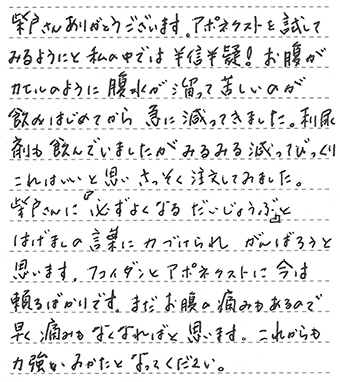 柴戸さんありがとうございます。アポネクストを試して
みるようにと私の中では半信半疑！お腹が
カエルのように腹水が溜って苦しいのが
飲みはじめてから急に減ってきました。利尿
剤も飲んでいましたがみるみる減ってびっくり
これはいいと思いさっそく注文してみました。
柴戸さんに『必ずよくなるだいじょうぶ』と
はげましの言葉に力づけられがんばろうと
思います。フコイダンとアポネクストに今は
頼るばかりです。まだお腹の痛みもあるので
早く痛みもなくなればと思います。これからも
力強いみかたとなってください。